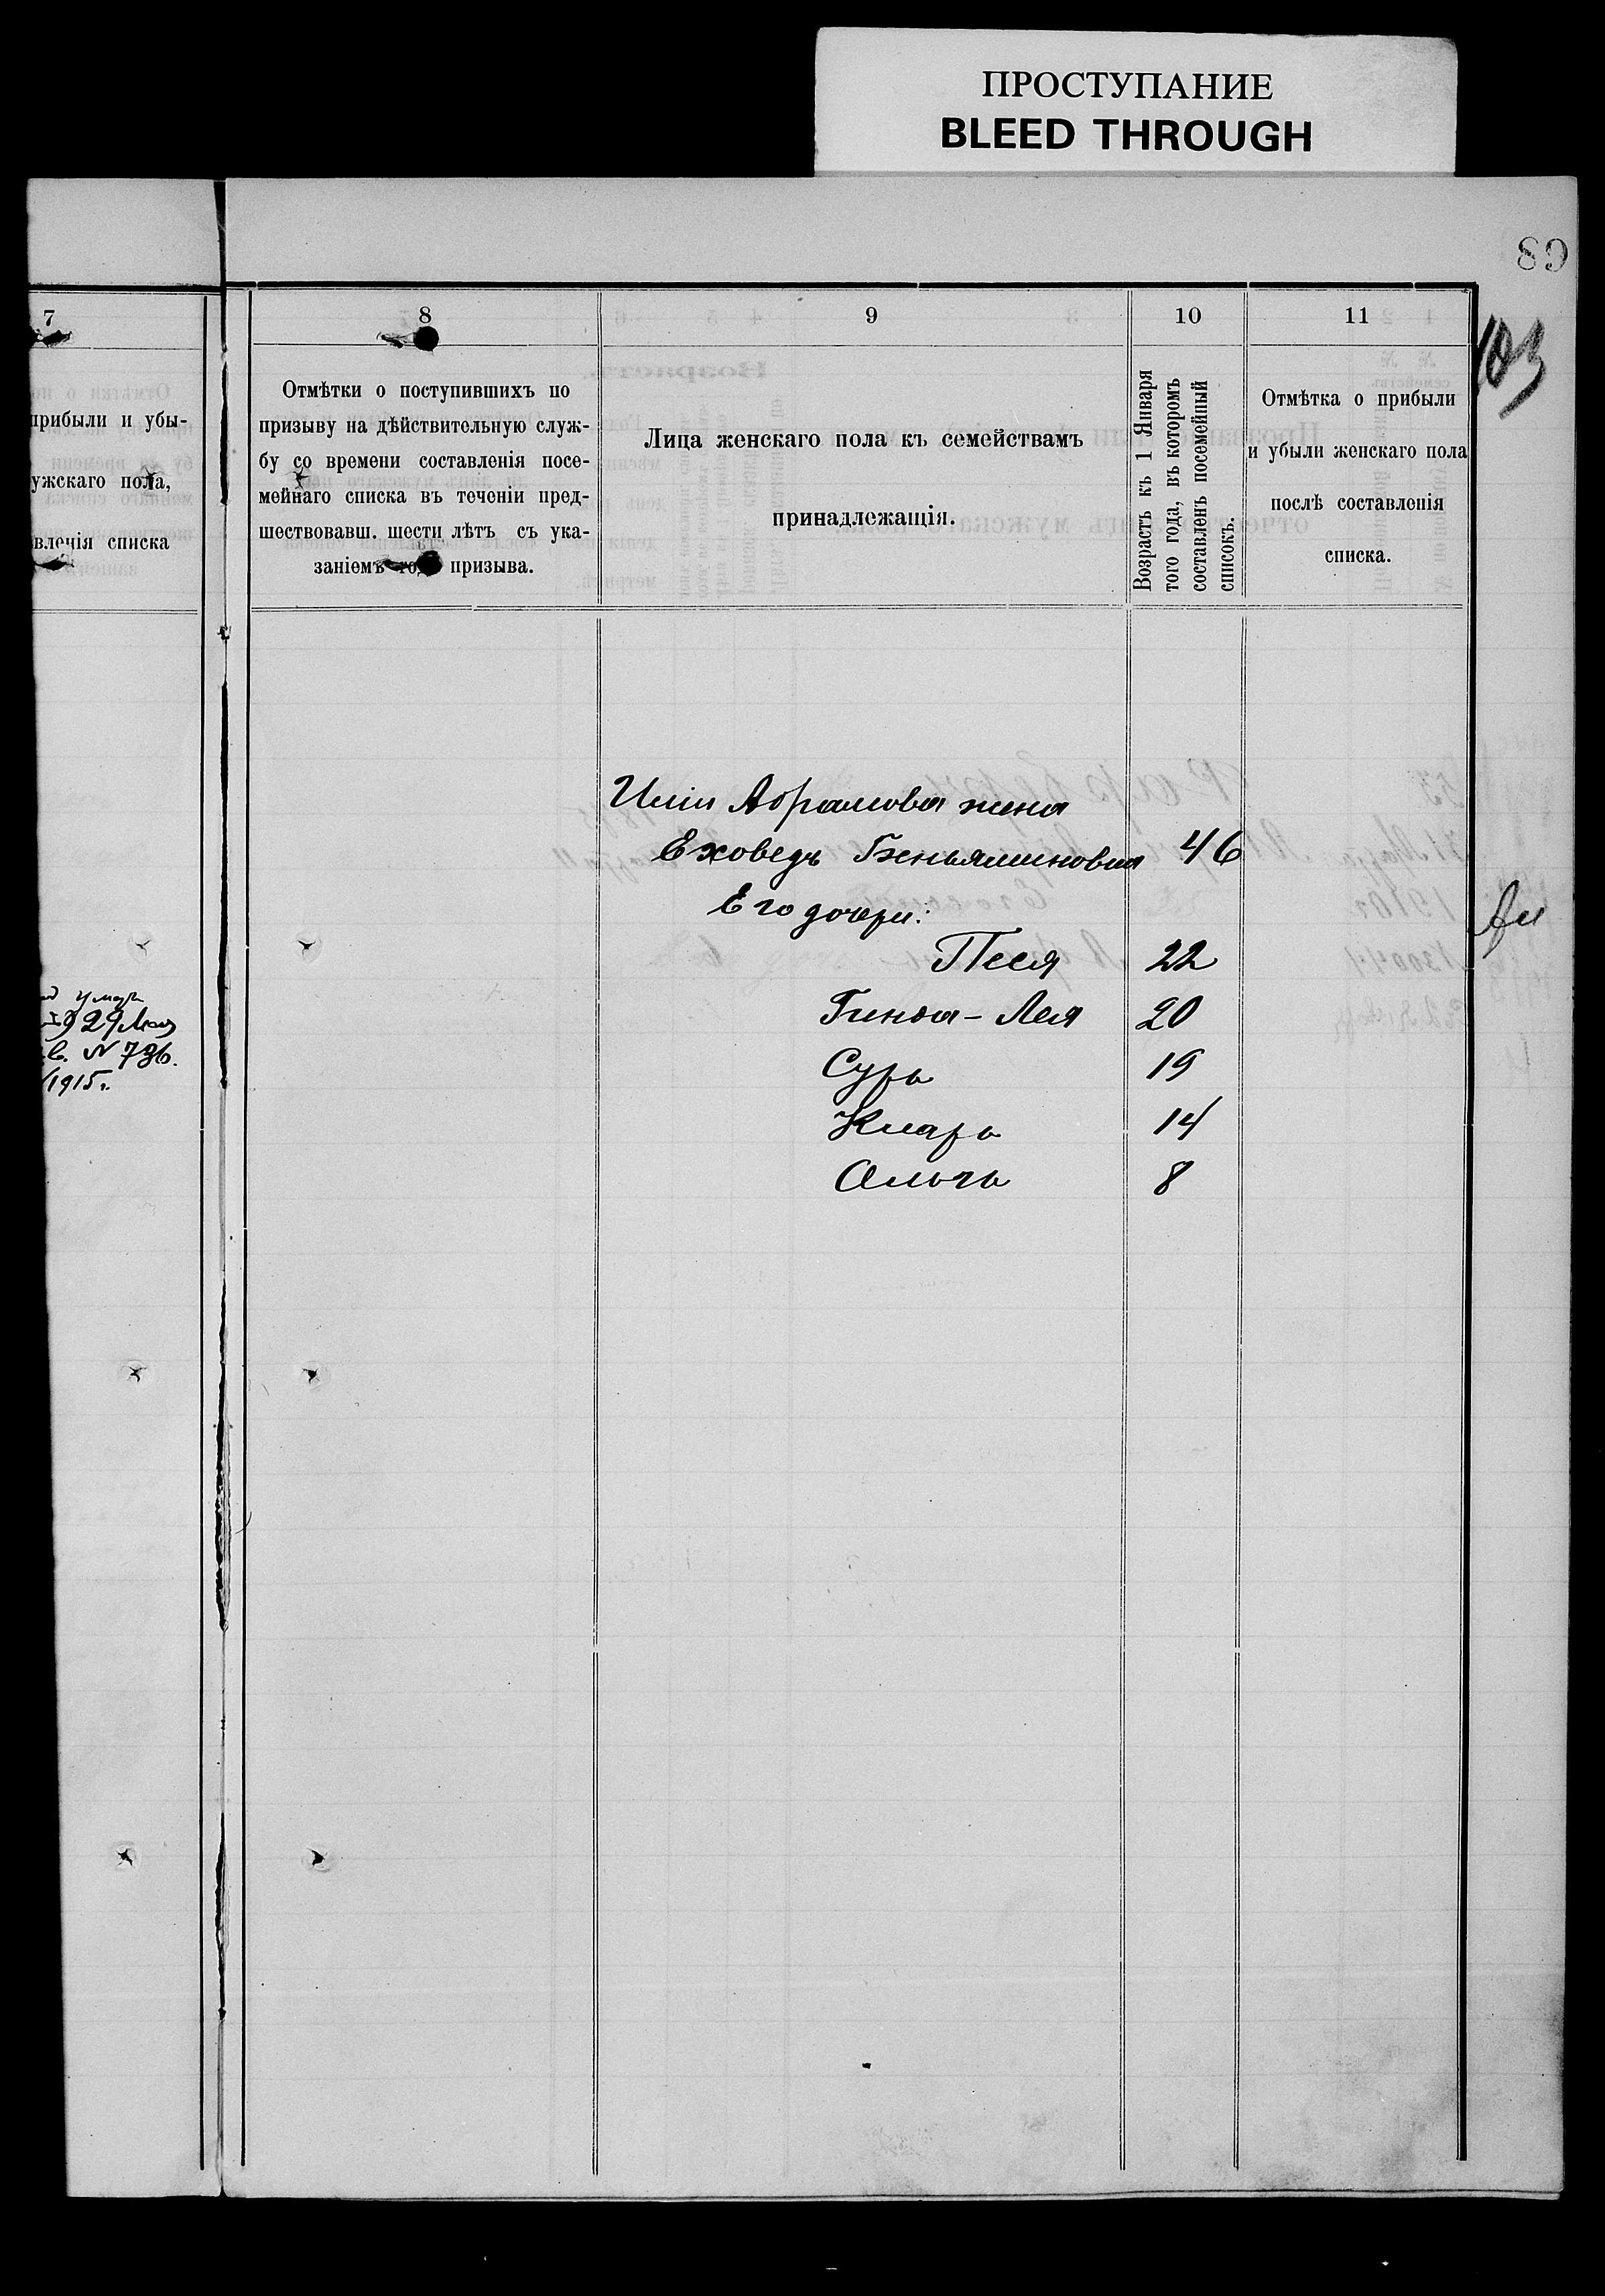 ПРОСТУПАНИЕ
BLEED THROUGH
89
7
8
9
10
11
103
прибыли и убы-
ужскаго пола,
вленія списка
Отмѣтки о поступившихъ по
призыву на дѣйствительную служ-
бу со времени составленія посе-
мейнаго списка въ теченіи пред-
шествовавш. шести лѣтъ съ ука-
заніемъ года призыва.
Лица женскаго пола къ семействамъ
принадлежащія.
Возрастъ къ 1 Января
того года, въ которомъ
составленъ посемейный
списокъ.
Отмѣтка о прибыли
и убыли женскаго пола
послѣ составленія
списка.
Абрамова жена
Еховедъ Беньяминовна 46
Его дочери:
Песя 22
Гинда-Лея 20
Сура 19
Клара 14
Ольга 8
умеръ
29 Мая
в. № 736.
1915 г.